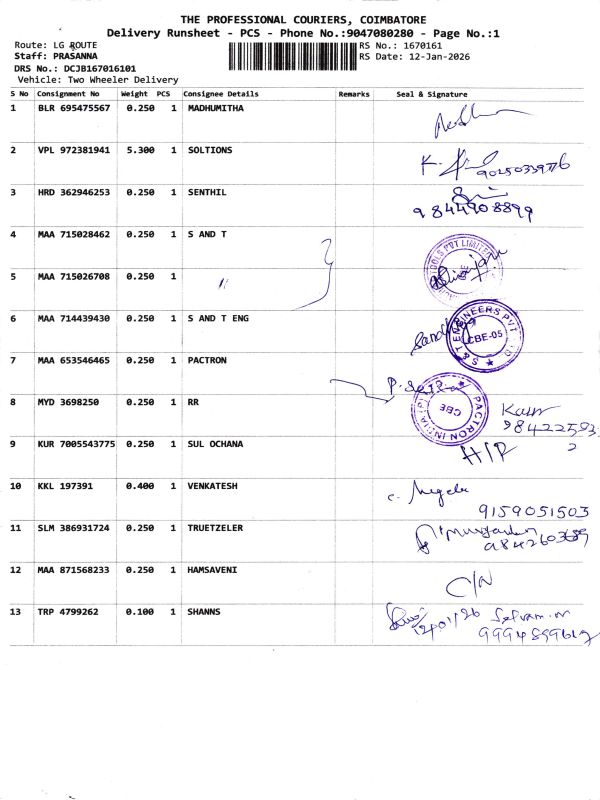 THE PROFESSIONAL COURIERS, COIMBATORE
Delivery Runsheet - PCS - Phone No.:9047080280 - Page No.:1
Route: LG ROUTE RS No.: 1670161
Staff: PRASANNA RS Date: 12-Jan-2026
DRS No.: DCJB167016101
Vehicle: Two Wheeler Delivery
S No Consignment No Weight PCS Consignee Details Remarks Seal & Signature
1 BLR 695475567 0.250 1 MADHUMITHA
2 VPL 972381941 5.300 1 SOLTIONS
3 HRD 362946253 0.250 1 SENTHIL
9844908899
4 MAA 715028462 0.250 1 S AND T
5 MAA 715026708 0.250 1 "
6 MAA 714439430 0.250 1 S AND T ENG
S & T ENGINEERS PVT LTD
CBE-05
7 MAA 653546465 0.250 1 PACTRON
8 MYD 3698250 0.250 1 RR
PACTRON INDIA (P)
CBE
9 KUR 7005543775 0.250 1 SUL OCHANA
H/P
10 KKL 197391 0.400 1 VENKATESH
9159051503
11 SLM 386931724 0.250 1 TRUETZELER
12 MAA 871568233 0.250 1 HAMSAVENI
C/N
13 TRP 4799262 0.100 1 SHANNS
12/01/26 Selvam.M